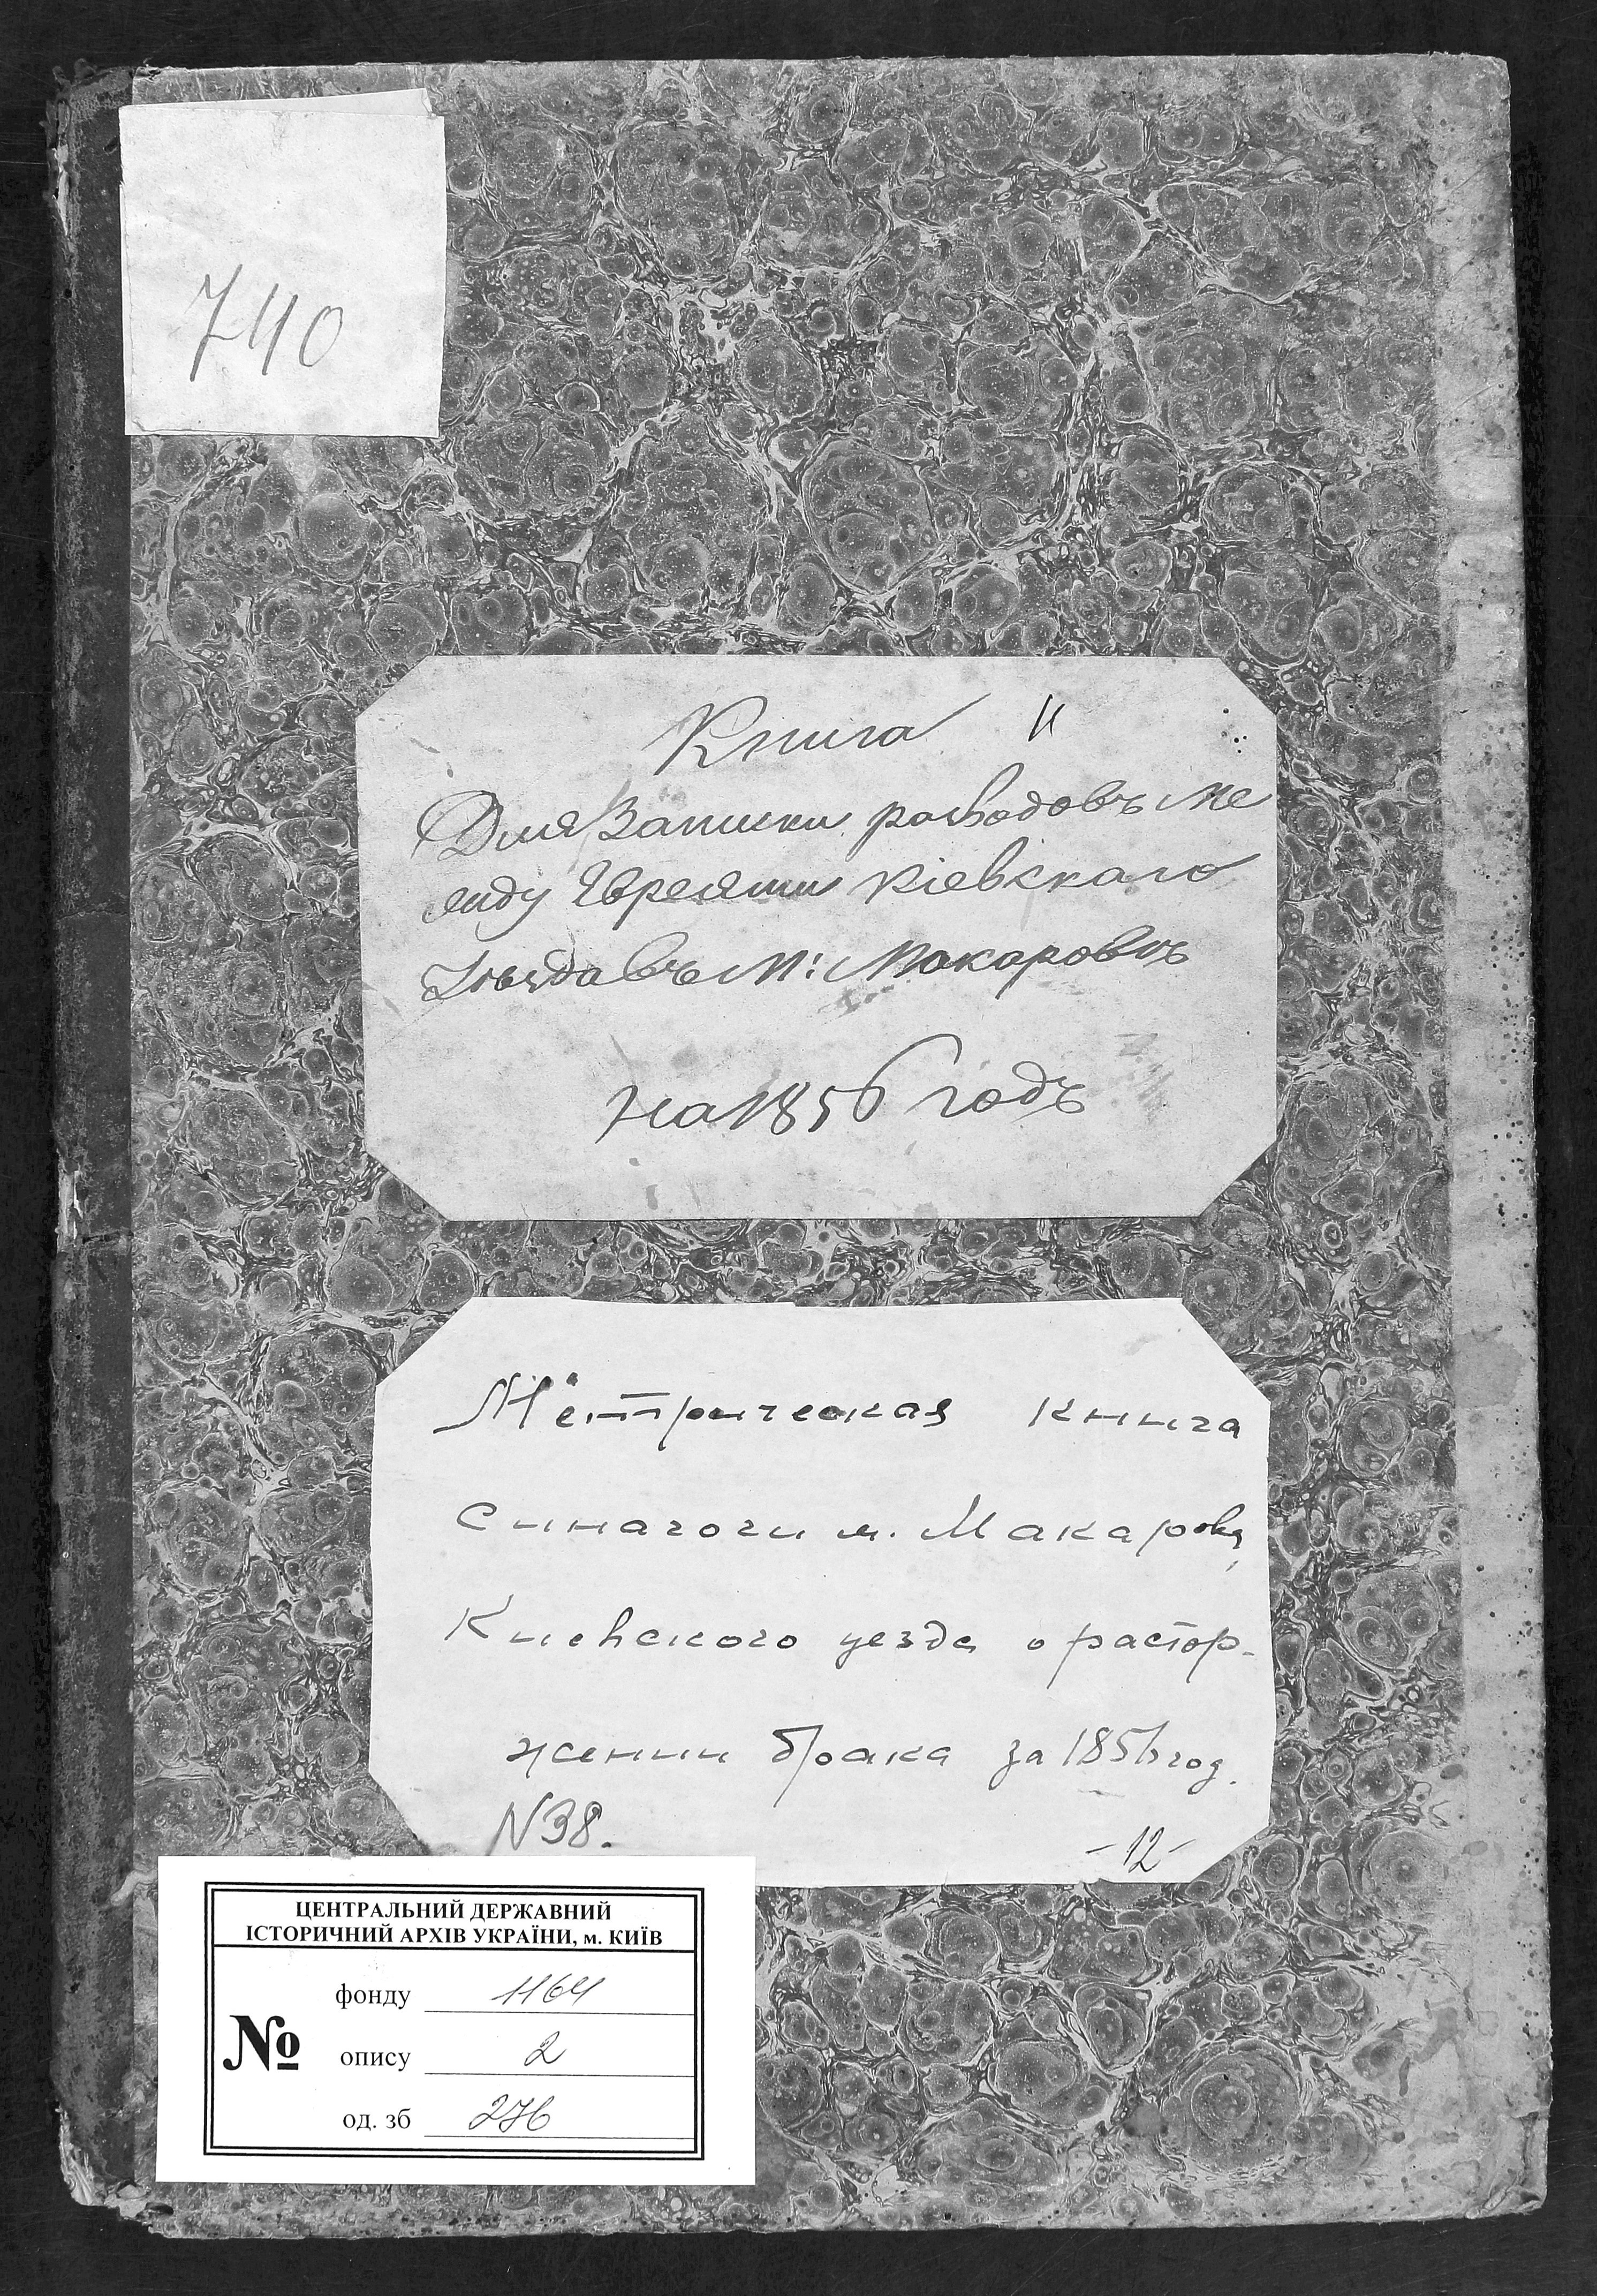 740
Книга
Для Записки разводовъ ме
жду Евреями Кіевскаго
Уѣзда въ М: Макаровѣ
на 1856 годъ
Метрическая книга
синагоги м. Макарова,
Киевского уезда о растор-
жении брака за 1856 год.
N 38.
-12-
ЦЕНТРАЛЬНИЙ ДЕРЖАВНИЙ
ІСТОРИЧНИЙ АРХІВ УКРАЇНИ, м. КИЇВ
№
фонду 1164
опису 2
од. зб 276